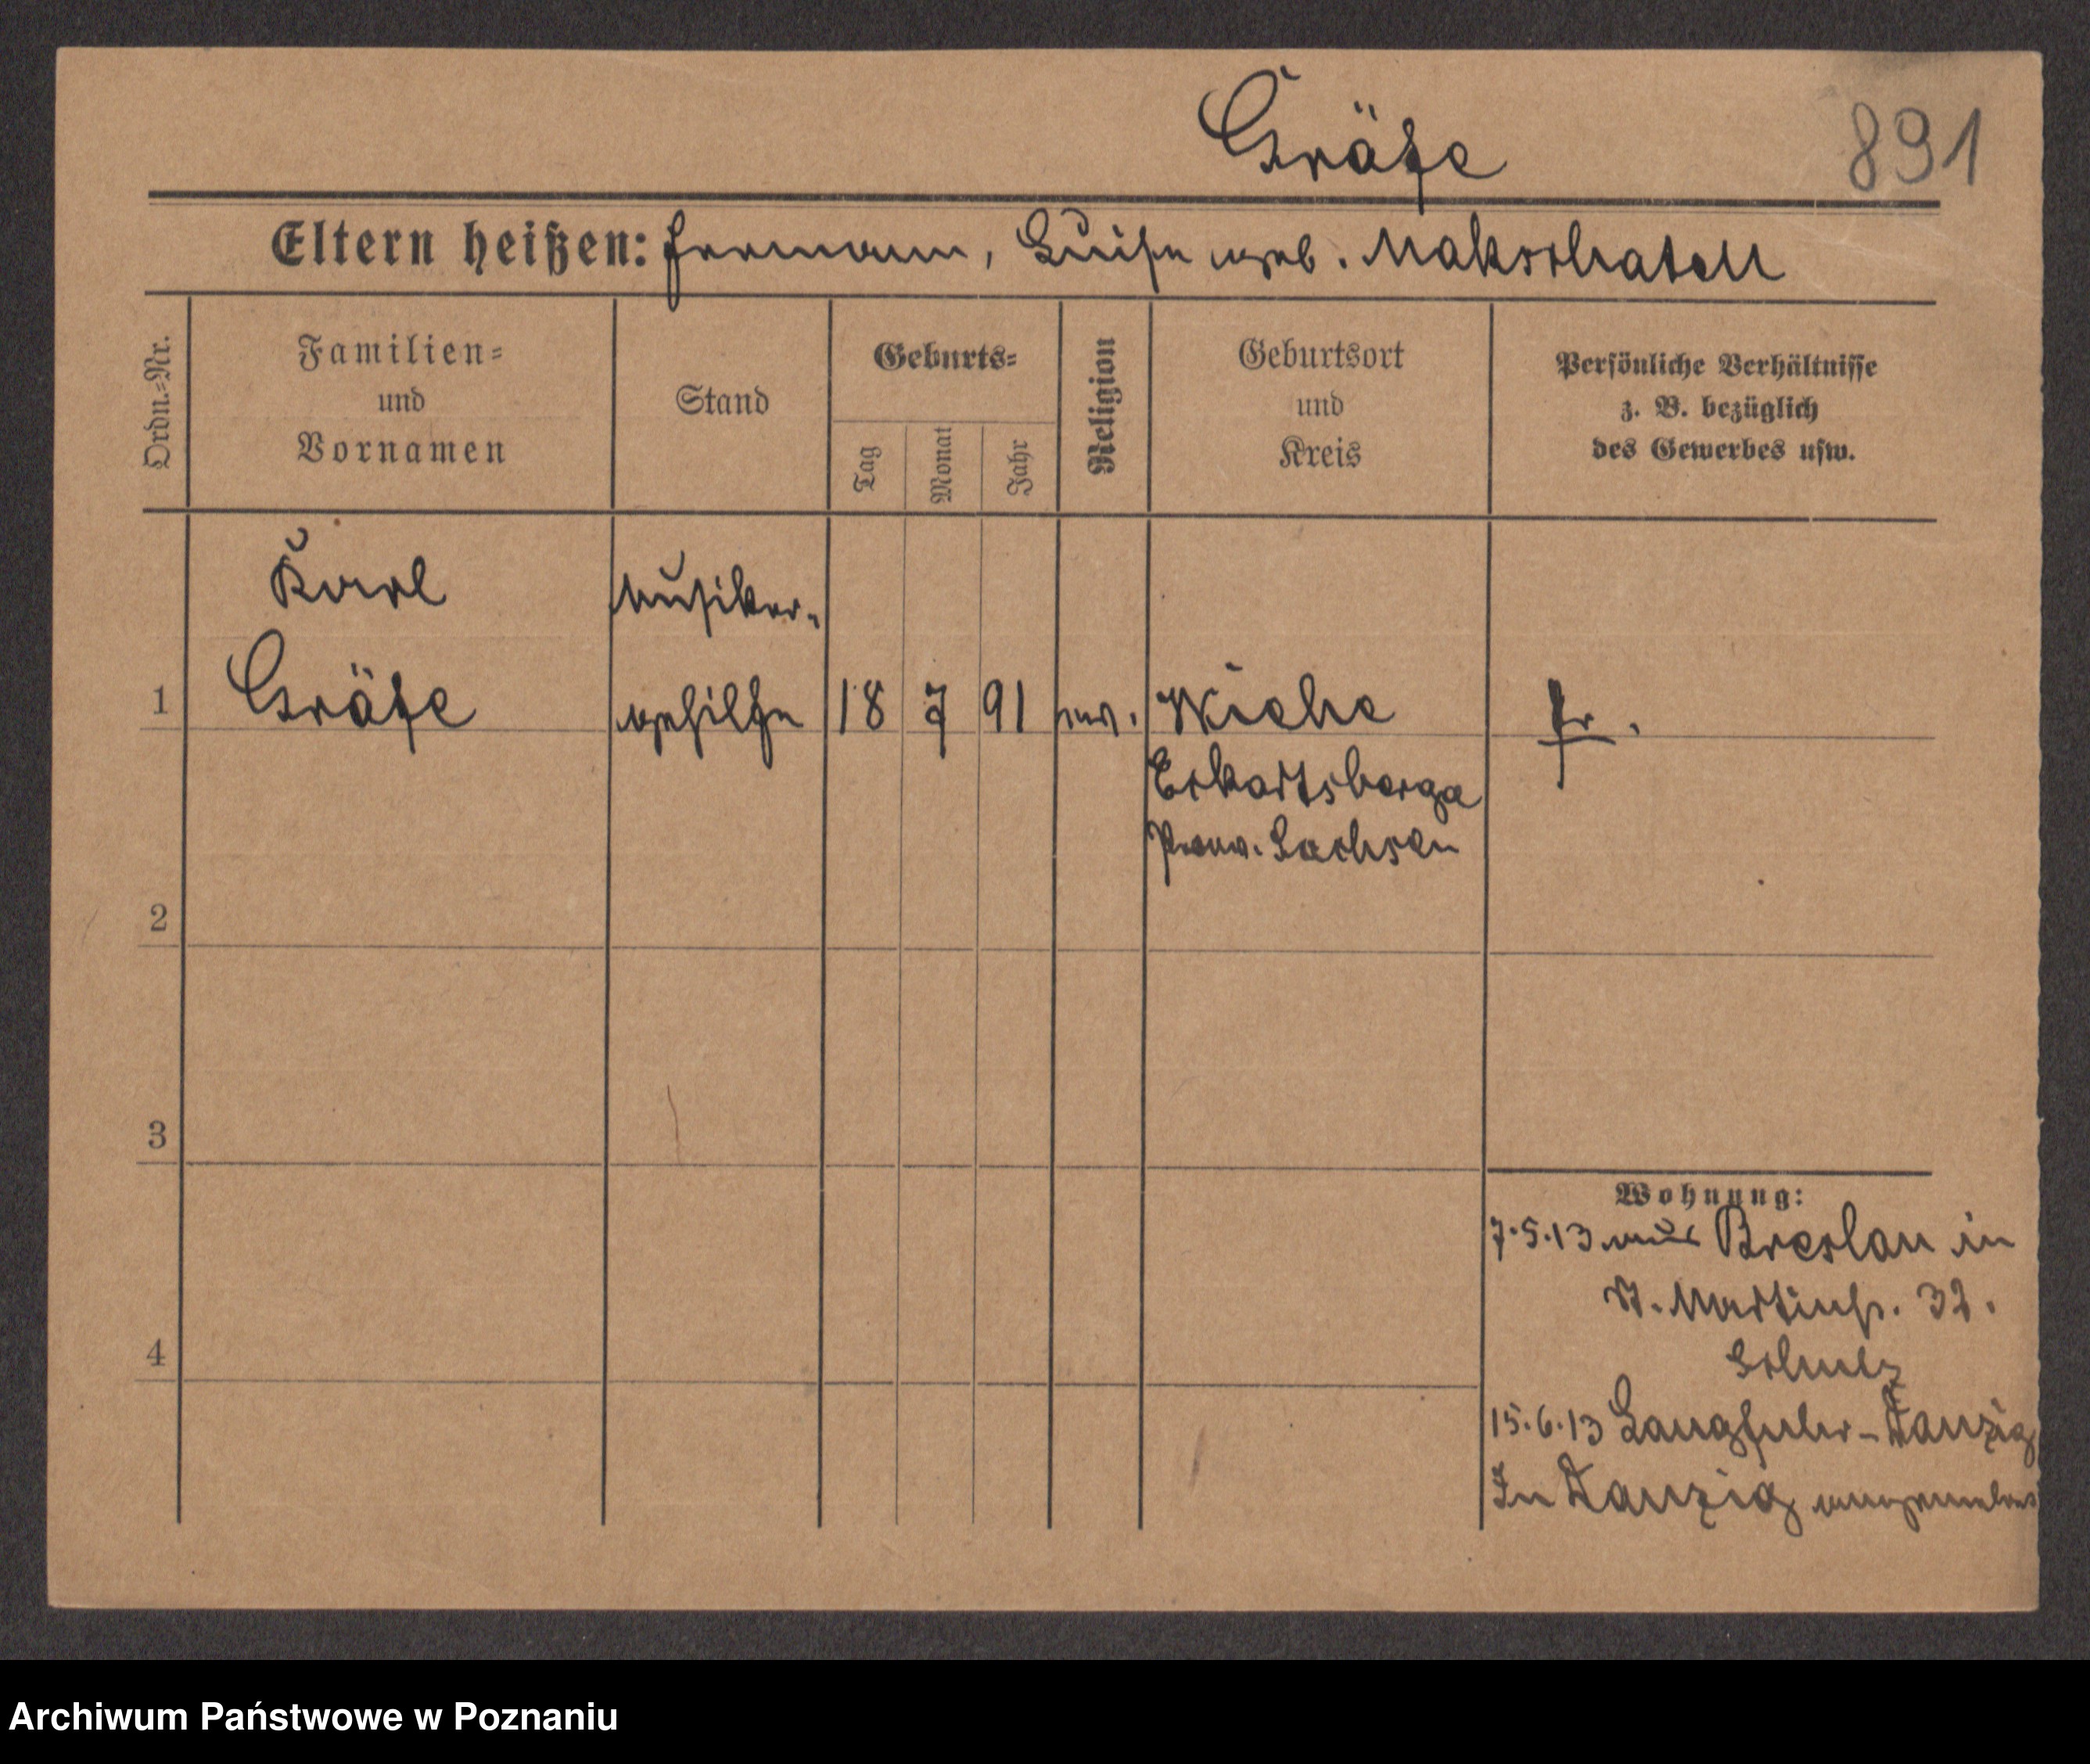 Gräfe 891
Eltern heißen: Hermann, Luise geb. Makschatell
Ordn.=Nr.
Familien=
und
Vornamen
Stand
Geburts=
Tag
Monat
Jahr
Religion
Geburtsort
und
Kreis
Persönliche Verhältnisse
z. B. bezüglich
des Gewerbes usw.
Karl Musiker-
1 Gräfe gehilfe 18 7 91 ev. Wiehe Pr.
Eckartsberga
Prov. Sachsen
2
3
Wohnung:
7.5.13 aus Breslau in
St. Martinstr. 32.
4 Schulz
15.6.13 Langfuhr-Danzig
In Danzig angemeldet
Archiwum Państwowe w Poznaniu